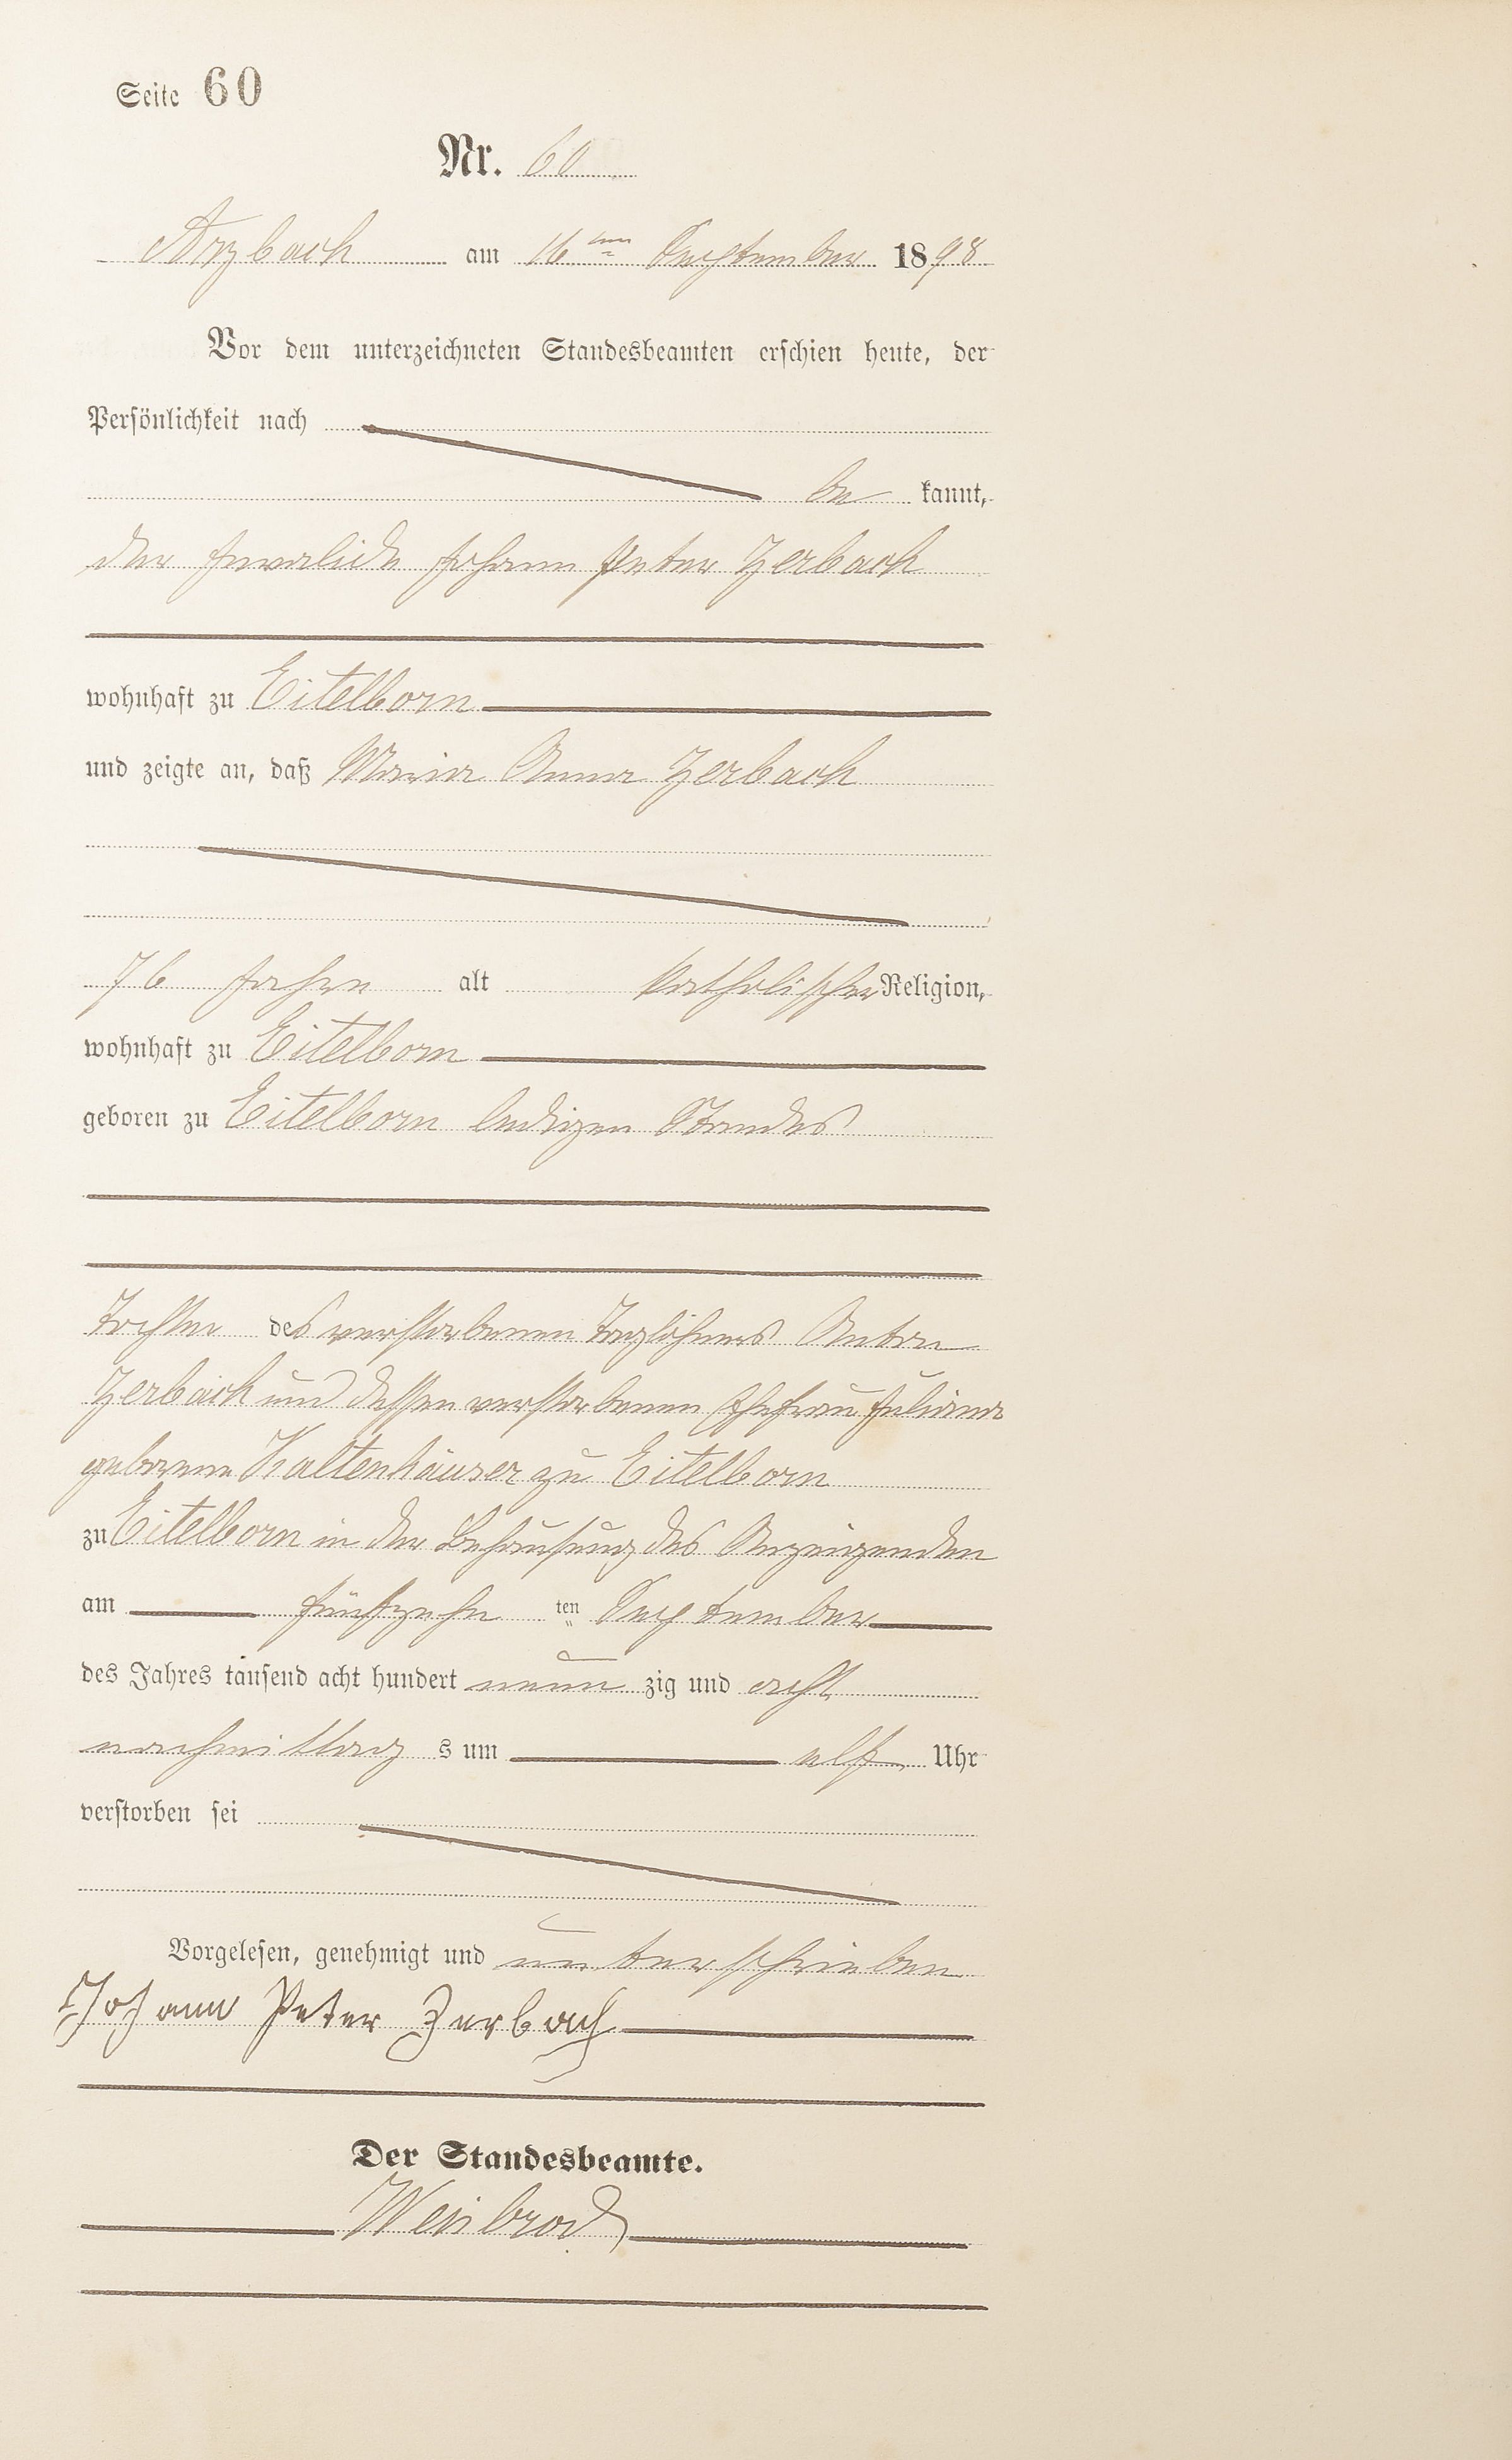 Seite 60
Nr. 60
Arzbach am 16ten September 1898
Vor dem unterzeichneten Standesbeamten erschien heute, der
Persönlichkeit nach
be kannt,
der Invalide Johann Peter Zerbach
wohnhaft zu Eitelborn
und zeigte an, daß Maria Anna Zerbach
76 Jahre alt katholischer Religion,
wohnhaft zu Eitelborn
geboren zu Eitelborn ledigen Standes
Tochter des verstorbenen Taglöhners Anton
Zerbach und dessen verstorbenen Ehefrau Juliana
geborene Kaltenhäuser zu Eitelborn
zu Eitelborn in der Behausung des Anzeigenden
am fünfzehn ten September
des Jahres tausend acht hundert neun zig und acht
nachmittag s um elf Uhr
verstorben sei
Vorgelesen, genehmigt und unterschrieben
Johann Peter Zerbach
Der Standesbeamte.
Weinbrod